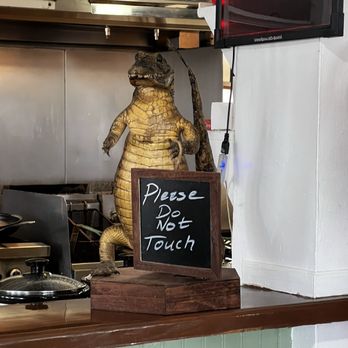 Please
Do
Not
Touch